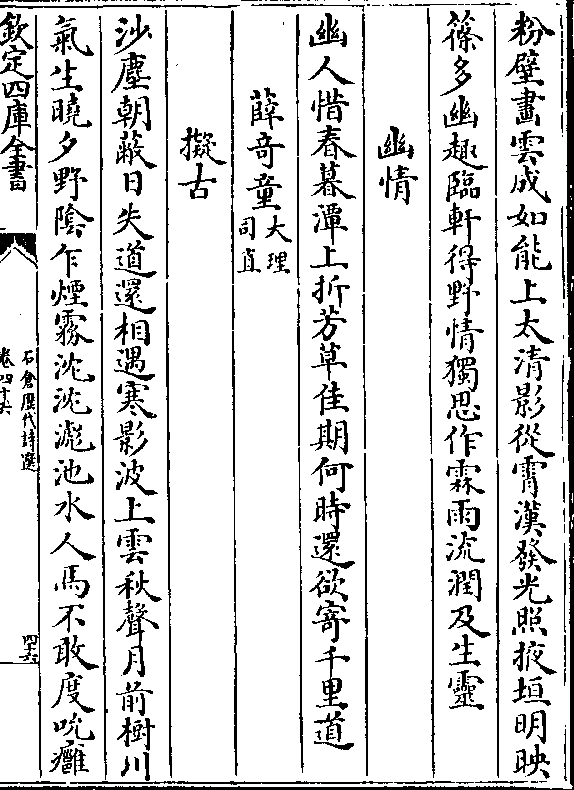 粉壁畫雲成如能上太清影從霄漢發光照掖垣明映
篠多幽趣臨軒得野情獨思作霖雨流潤及生靈
幽情
幽人惜春暮潭上折芳草佳期何時還欲寄千里道
薛奇童大理司直
擬古
沙塵朝蔽日失道還相遇寒影波上雲秋聲月前樹川
氣生曉夕野陰乍煙霧沈沈滮池水人馬不敢度吮癰
欽定四庫全書
石倉歷代詩選
卷四十六
四十六